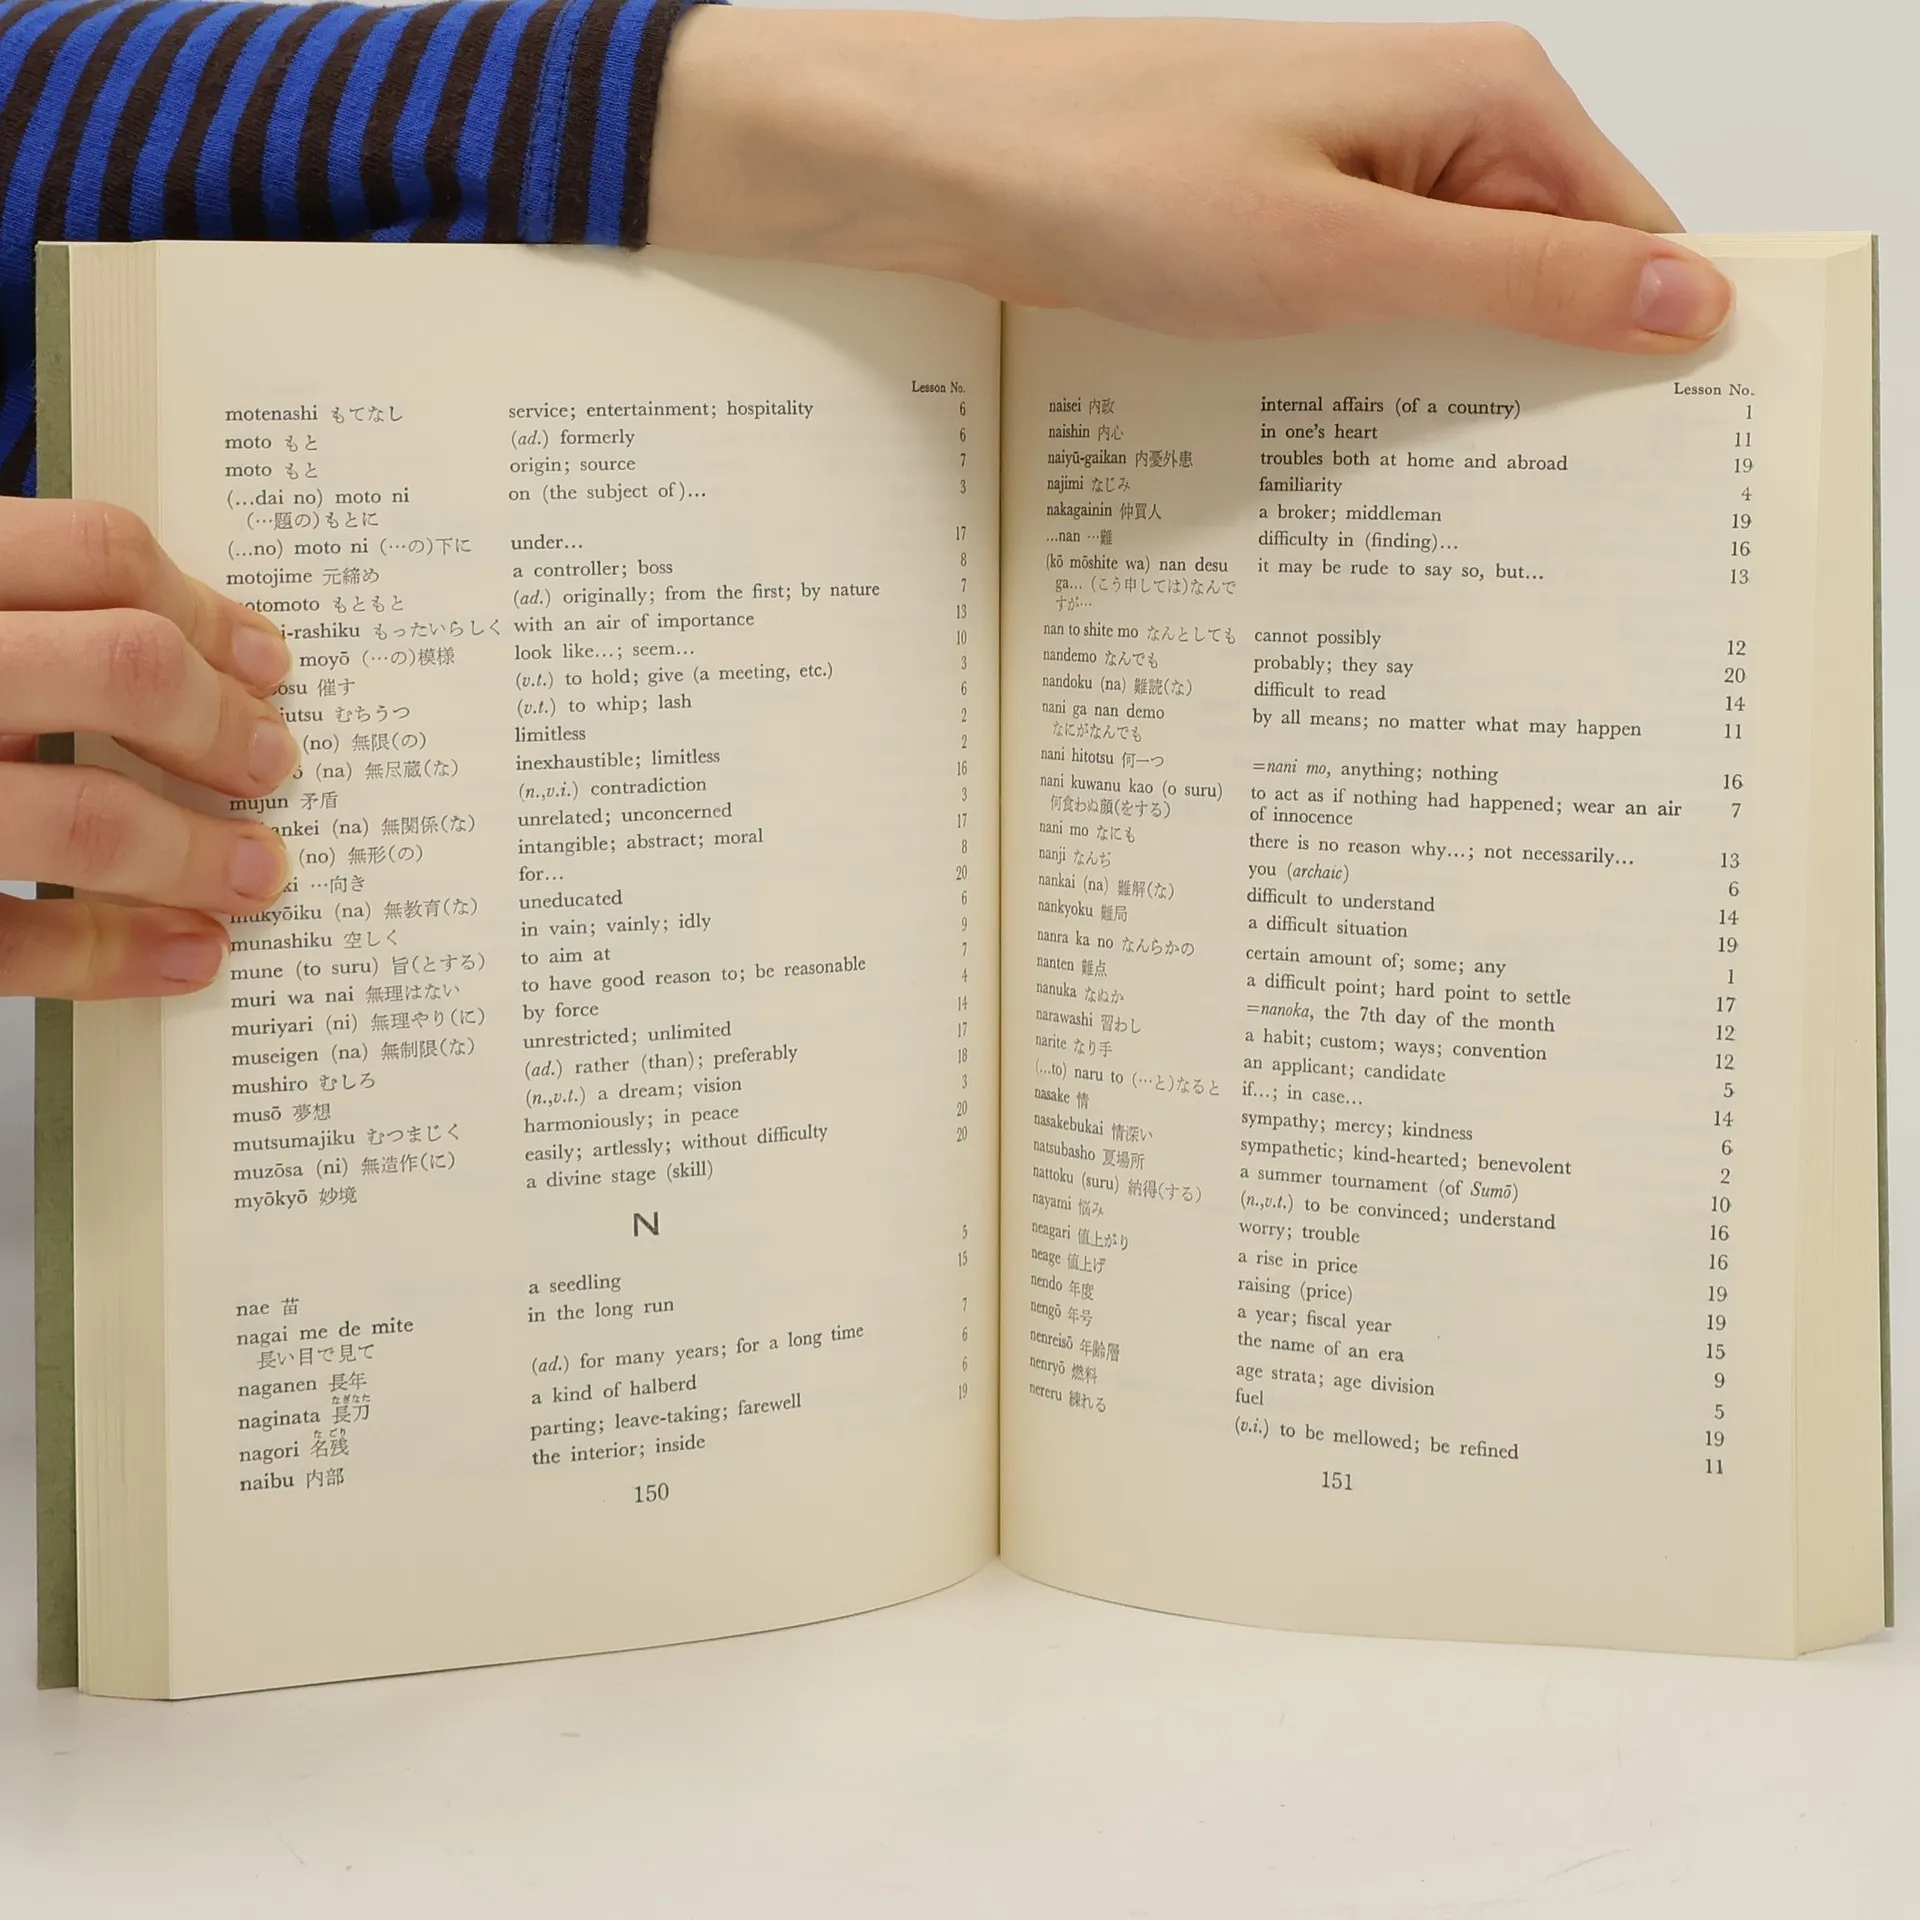 Lesson No.
motenashi もてなし service; entertainment; hospitality 6
moto もと (ad.) formerly 6
moto もと origin; source 7
(…dai no) moto ni on (the subject of)… 3
(…題の)もとに
(…no) moto ni (…の)下に under… 17
motojime 元締め a controller; boss 8
もともと (ad.) originally; from the first; by nature 7
もったいらしく with an air of importance 13
moyō (…の)模様 look like…; seem… 10
催す (v.t.) to hold; give (a meeting, etc.) 3
むちうつ (v.t.) to whip; lash 6
(no) 無限(の) limitless 2
(na) 無尽蔵(な) inexhaustible; limitless 2
mujun 矛盾 (n.,v.i.) contradiction 16
(na) 無関係(な) unrelated; unconcerned 3
(no) 無形(の) intangible; abstract; moral 17
…向き for… 8
mukyōiku (na) 無教育(な) uneducated 20
munashiku 空しく in vain; vainly; idly 6
mune (to suru) 旨(とする) to aim at 9
muri wa nai 無理はない to have good reason to; be reasonable 7
muriyari (ni) 無理やり(に) by force 4
museigen (na) 無制限(な) unrestricted; unlimited 14
mushiro むしろ (ad.) rather (than); preferably 17
musō 夢想 (n.,v.t.) a dream; vision 18
mutsumajiku むつまじく harmoniously; in peace 3
muzōsa (ni) 無造作(に) easily; artlessly; without difficulty 20
myōkyō 妙境 a divine stage (skill) 20
N
nae 苗 a seedling 5
nagai me de mite in the long run 15
長い目で見て
naganen 長年 (ad.) for many years; for a long time 7
なぎなた
naginata 長刀 a kind of halberd 6
なごり
nagori 名残 parting; leave-taking; farewell 6
naibu 内部 the interior; inside 19
150
Lesson No.
naisei 内政 internal affairs (of a country) 1
naishin 内心 in one's heart 11
naiyū-gaikan 内憂外患 troubles both at home and abroad 19
najimi なじみ familiarity 4
nakagainin 仲買人 a broker; middleman 19
…nan …難 difficulty in (finding)… 16
(kō mōshite wa) nan desu it may be rude to say so, but… 13
ga… (こう申しては)なんで
すが…
nan to shite mo なんとしても cannot possibly 12
nandemo なんでも probably; they say 20
nandoku (na) 難読(な) difficult to read 14
nani ga nan demo by all means; no matter what may happen 11
なにがなんでも
nani hitotsu 何一つ =nani mo, anything; nothing 16
nani kuwanu kao (o suru) to act as if nothing had happened; wear an air 7
何食わぬ顔(をする) of innocence
nani mo なにも there is no reason why…; not necessarily… 13
nanji なんぢ you (archaic) 6
nankai (na) 難解(な) difficult to understand 14
nankyoku 難局 a difficult situation 19
nanra ka no なんらかの certain amount of; some; any 1
nanten 難点 a difficult point; hard point to settle 17
nanuka なぬか =nanoka, the 7th day of the month 12
narawashi 習わし a habit; custom; ways; convention 12
narite なり手 an applicant; candidate 5
(…to) naru to (…と)なると if…; in case… 14
nasake 情 sympathy; mercy; kindness 6
nasakebukai 情深い sympathetic; kind-hearted; benevolent 2
natsubasho 夏場所 a summer tournament (of Sumō) 10
nattoku (suru) 納得(する) (n.,v.t.) to be convinced; understand 16
nayami 悩み worry; trouble 16
neagari 値上がり a rise in price 19
neage 値上げ raising (price) 19
nendo 年度 a year; fiscal year 15
nengō 年号 the name of an era 9
nenreisō 年齢層 age strata; age division 5
nenryō 燃料 fuel 19
nereru 練れる (v.i.) to be mellowed; be refined 11
151